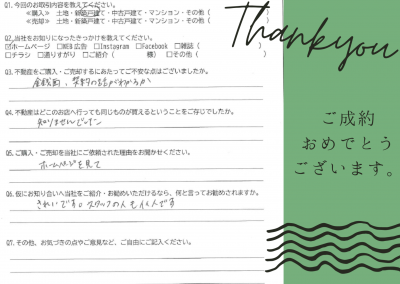 Q1.今回のお取引内容を教えてください。
≪購入≫ 土地・新築戸建て・中古戸建て・マンション・その他（ ）
≪売却≫ 土地・新築戸建て・中古戸建て・マンション・その他（ ）
Q2.当社をお知りになったきっかけを教えてください。
☑ホームページ □WEB広告 □Instagram □Facebook □雑誌（ ）
□チラシ □通りすがり □ご紹介（ 様）□その他（ ）
Q3.不動産をご購入・ご売却するにあたってご不安な点はございましたか。
金銭面、契約の話がわかるか
Q4.不動産はどこのお店へ行っても同じものが買えるということをご存じでしたか。
知りませんでした
Q5.ご購入・ご売却を当社にご依頼された理由をお聞かせください。
ホームページを見て
Q6.仮にお知り合いへ当社をご紹介・お勧めいただけるなら、何と言ってお勧めされますか。
きれいです。スタッフの人もいい人です
Q7.その他、お気づきの点やご意見など、ご自由にご記入ください。
Thank you
ご成約
おめでとう
ございます。